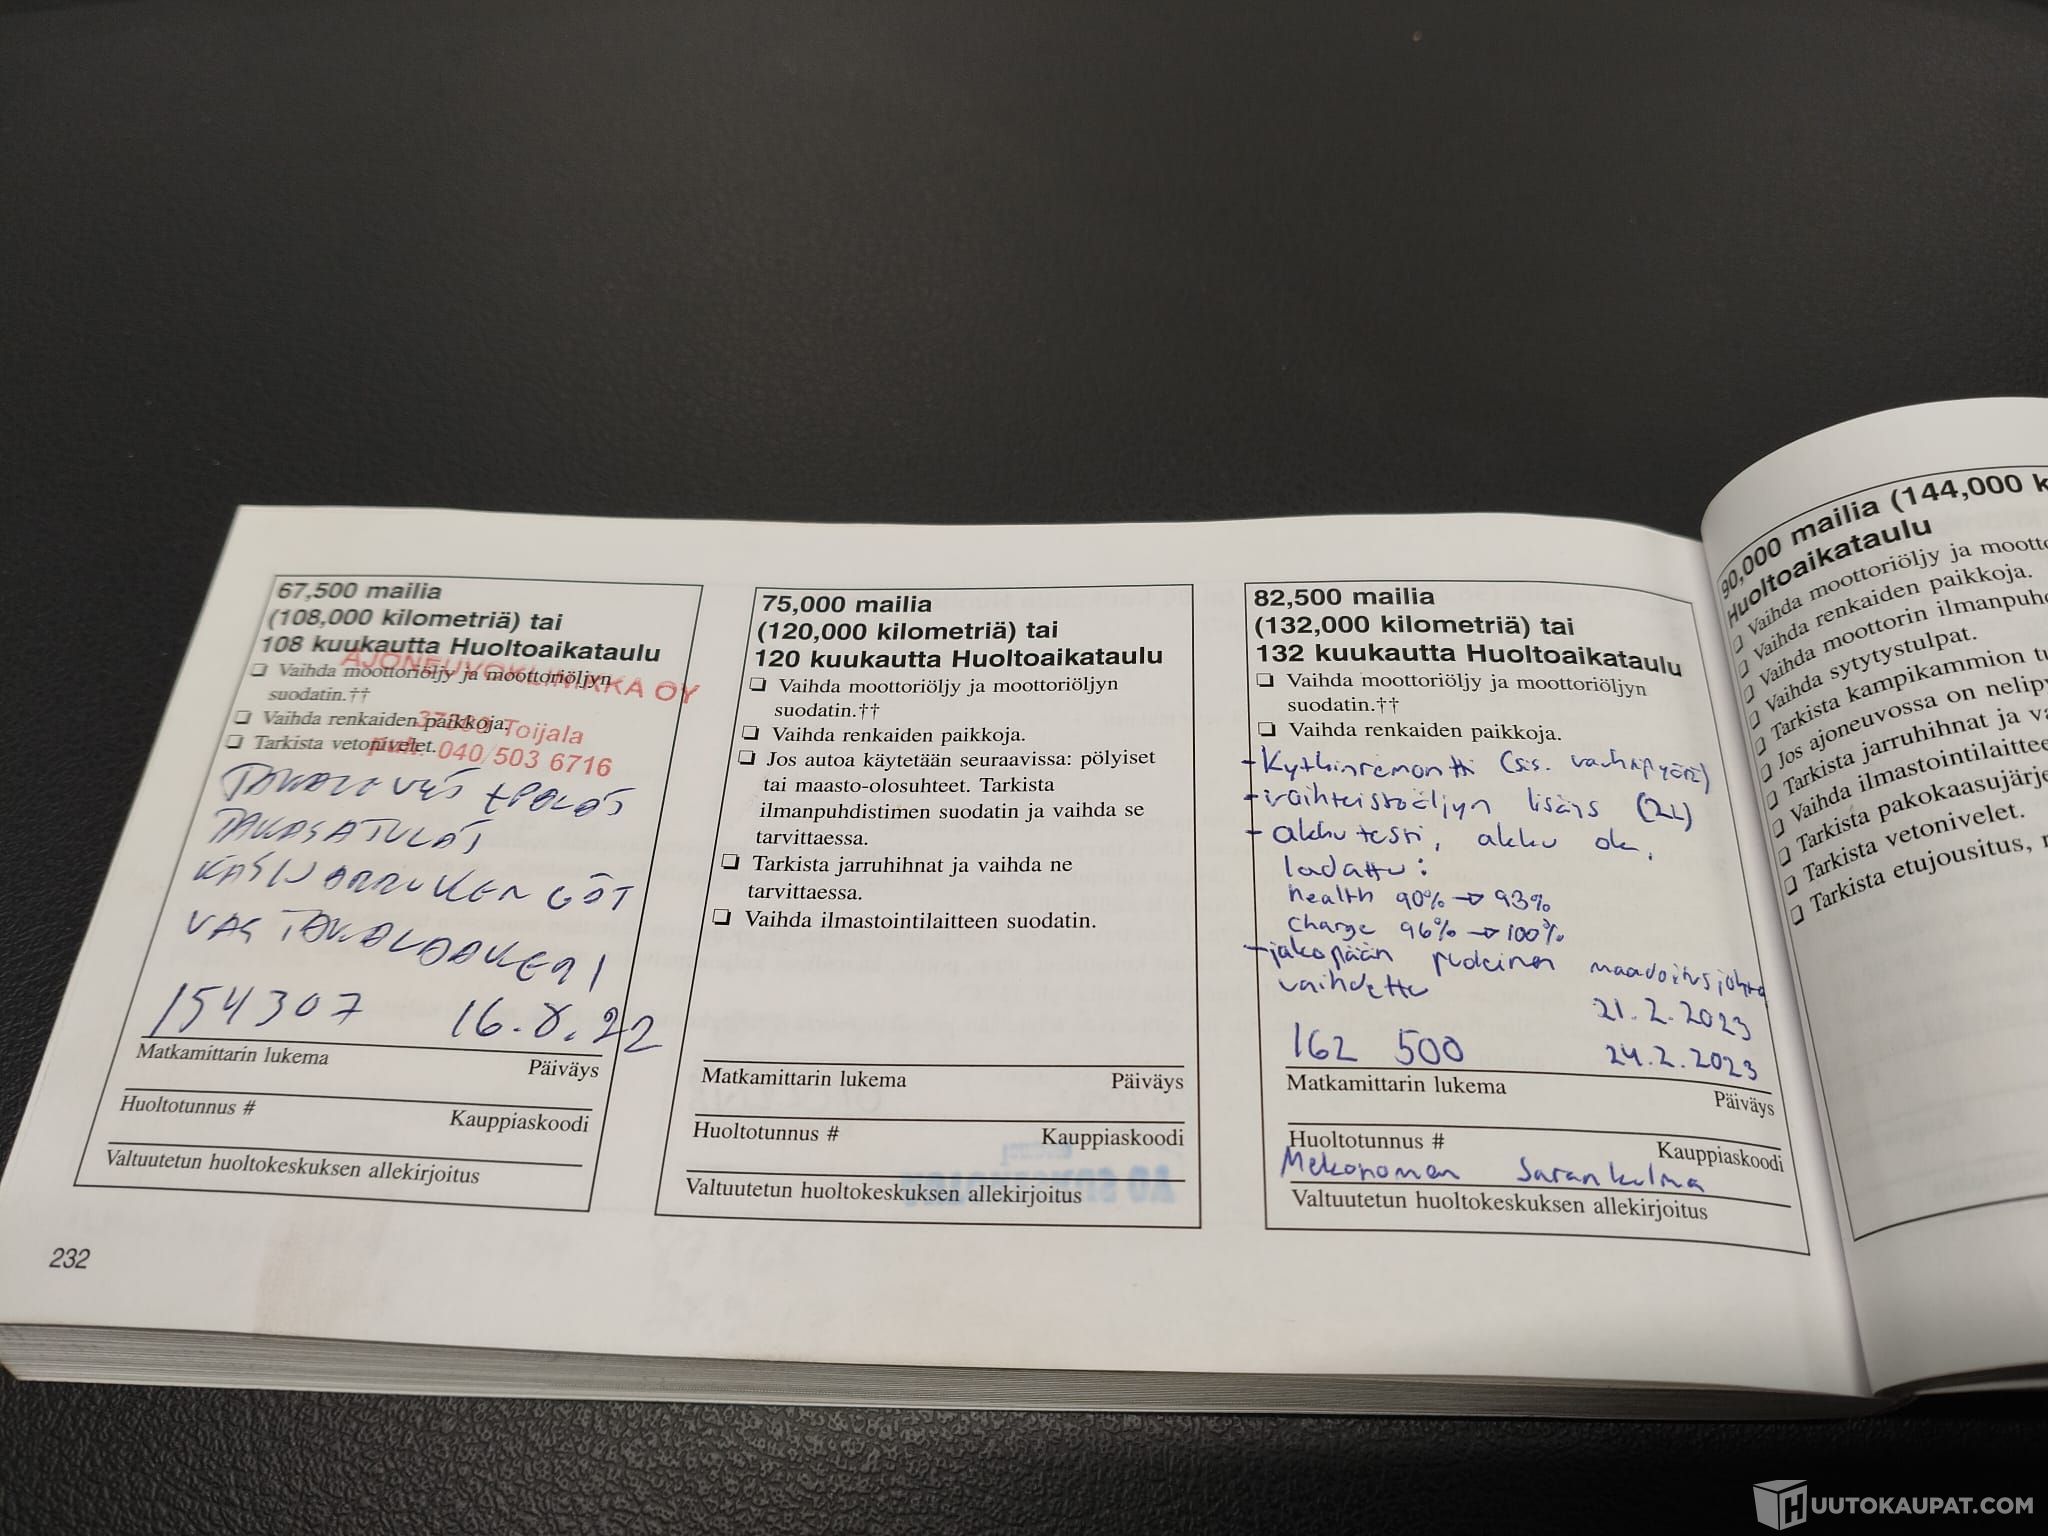 67,500 mailia
(108,000 kilometriä) tai
108 kuukautta Huoltoaikataulu
AJONEUVOKLINIKKA OY
❏ Vaihda moottoriöljy ja moottoriöljyn
suodatin.††
Toijala
❏ Vaihda renkaiden paikkoja.
❏ Tarkista vetonivelet.
puh. 040/503 6716
154307 16.8.22
Matkamittarin lukema Päiväys
Huoltotunnus # Kauppiaskoodi
Valtuutetun huoltokeskuksen allekirjoitus
232
75,000 mailia
(120,000 kilometriä) tai
120 kuukautta Huoltoaikataulu
❏ Vaihda moottoriöljy ja moottoriöljyn
suodatin.††
❏ Vaihda renkaiden paikkoja.
❏ Jos autoa käytetään seuraavissa: pölyiset
tai maasto-olosuhteet. Tarkista
ilmanpuhdistimen suodatin ja vaihda se
tarvittaessa.
❏ Tarkista jarruhihnat ja vaihda ne
tarvittaessa.
❏ Vaihda ilmastointilaitteen suodatin.
Matkamittarin lukema Päiväys
Huoltotunnus # Kauppiaskoodi
Valtuutetun huoltokeskuksen allekirjoitus
82,500 mailia
(132,000 kilometriä) tai
132 kuukautta Huoltoaikataulu
❏ Vaihda moottoriöljy ja moottoriöljyn
suodatin.††
❏ Vaihda renkaiden paikkoja.
- Kytkinremontti (sis. vauhtipyörä)
- vaihteistoöljyn lisäys (2L)
- akku testi, akku ok,
ladattu:
health 90% → 93%
charge 96% → 100%
- jakopään puoleinen maadoitusjohto
vaihdettu
21.2.2023
162 500 24.2.2023
Matkamittarin lukema Päiväys
Huoltotunnus # Kauppiaskoodi
Mekonomen Sarankulma
Valtuutetun huoltokeskuksen allekirjoitus
90,000 mailia (144,000 k
Huoltoaikataulu
❏ Vaihda moottoriöljy ja moott
❏ Vaihda renkaiden paikkoja.
❏ Vaihda moottorin ilmanpuh
❏ Vaihda sytytystulpat.
❏ Tarkista kampikammion tu
❏ Jos ajoneuvossa on nelip
❏ Tarkista jarruhihnat ja va
❏ Vaihda ilmastointilaittee
❏ Tarkista pakokaasujärje
❏ Tarkista vetonivelet.
❏ Tarkista etujousitus,
HUUTOKAUPAT.COM